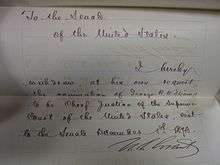 To the Senate
of the United States.
I hereby
withdraw, at his own request
the nomination of George H. Williams
to be Chief Justice of the Supreme
Court of the United States, sent
to the Senate December 1st 1873.
U. S. Grant